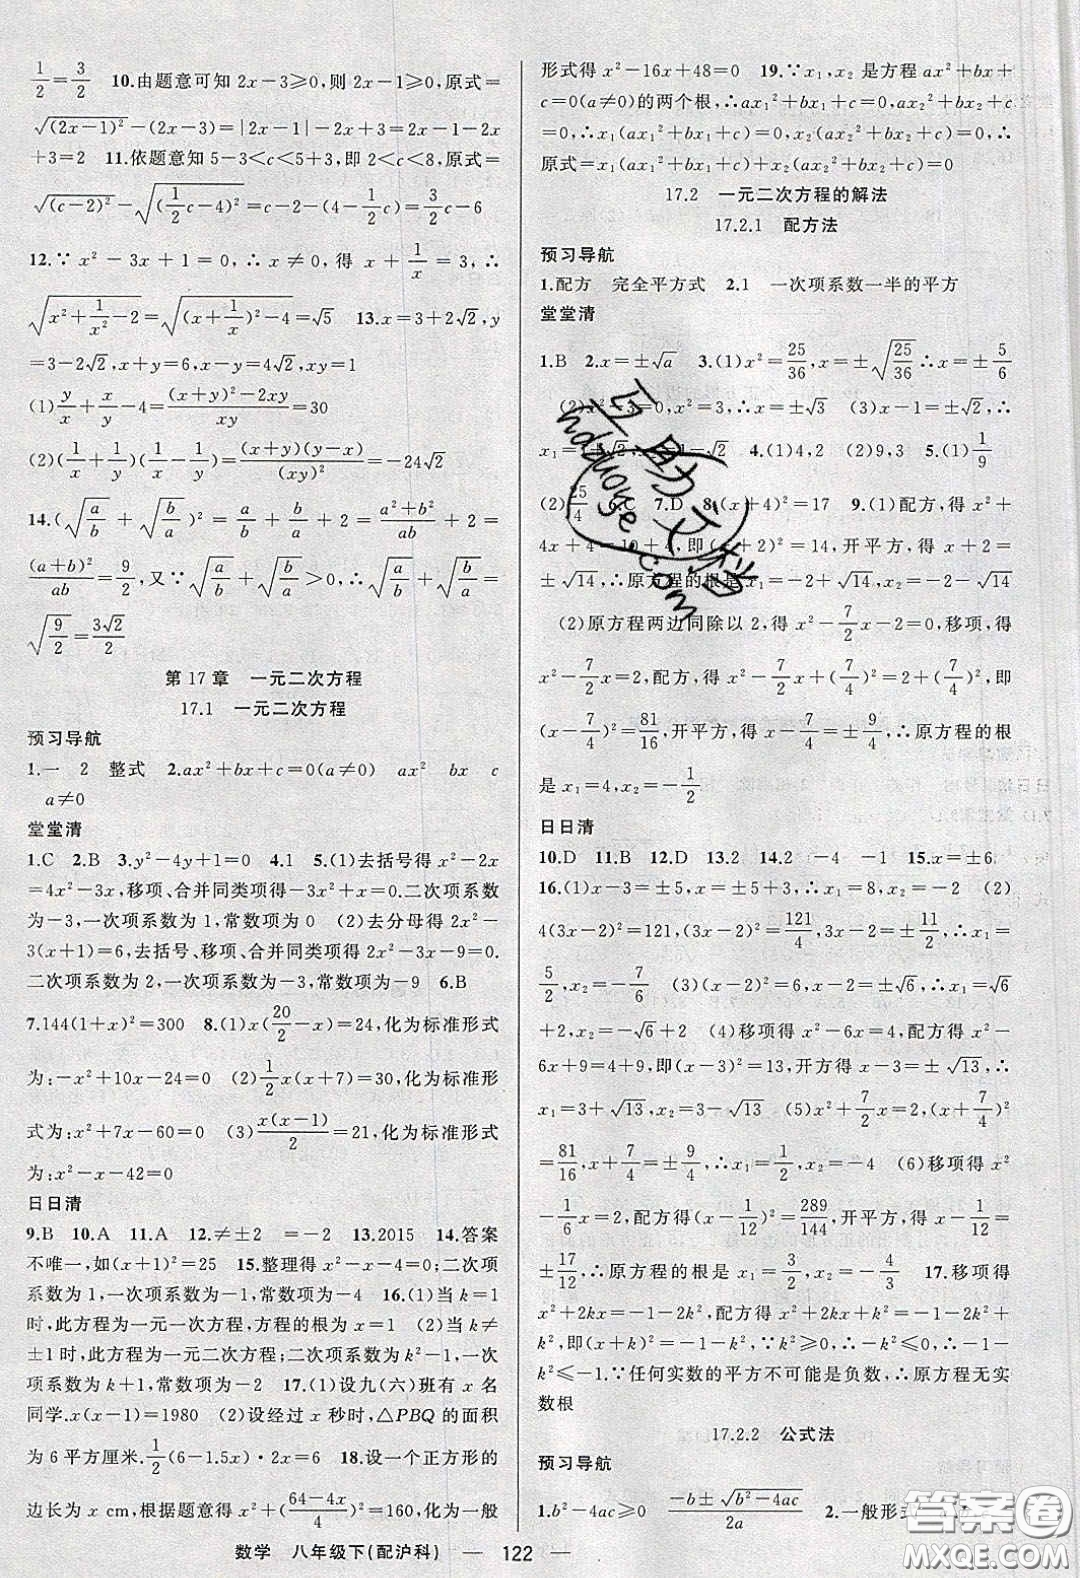 1/2=3/2 10.由题意可知 2x-3≥0,则 2x-1≥0,原式=
√(2x-1)²-(2x-3)=|2x-1|-2x+3=2x-1-2x
+3=2 11.依题意知 5-3<c<5+3,即 2<c<8,原式=
√(c-2)²-√(1/2c-4)²=c-2-(4-1/2c)=3/2c-6
12.∵ x²-3x+1=0,∴ x≠0,得 x+1/x=3,∴
√(x²+1/x²-2)=√((x+1/x)²-4)=√5 13.x=3+2√2,y
=3-2√2,x+y=6,x-y=4√2,xy=1
(1)y/x+x/y-4=((x+y)²-2xy)/xy=30
(2)(1/x+1/y)(1/x-1/y)=(x+y)(y-x)/(xy)²=-24√2
14.(√(a/b)+√(b/a))²=a/b+b/a+2=(a²+b²)/ab+2=
(a+b)²/ab=9/2,又∵√(a/b)+√(b/a)>0,∴√(a/b)+√(b/a)=
√(9/2)=3√2/2
第 17 章 一元二次方程
17.1 一元二次方程
预习导航
1.一 2 整式 2.ax²+bx+c=0(a≠0) ax² bx c
a≠0
堂堂清
1.C 2.B 3.y²-4y+1=0 4.1 5.(1)去括号得 x²-2x
=4x²-3x,移项、合并同类项得-3x²+x=0.二次项系数
为-3,一次项系数为 1,常数项为 0 (2)去分母得 2x²-
3(x+1)=6,去括号、移项、合并同类项得 2x²-3x-9=0.
二次项系数为 2,一次项系数为-3,常数项为-9 6.B
7.144(1+x)²=300 8.(1)x(20/2-x)=24,化为标准形式
为:-x²+10x-24=0 (2)1/2x(x+7)=30,化为标准形
式为:x²+7x-60=0 (3)x(x-1)/2=21,化为标准形式
为:x²-x-42=0
日日清
9.B 10.A 11.A 12.≠±2 =-2 13.2015 14.答案
不唯一,如(x+1)²=25 15.整理得 x²-x-4=0,二次项
系数为 1,一次项系数为-1,常数项为-4 16.(1)当 k=1
时,此方程为一元一次方程,方程的根为 x=1 (2)当 k≠
±1 时,此方程为一元二次方程;二次项系数为 k²-1,一次
项系数为 k+1,常数项为-2 17.(1)设九(六)班有 x 名
同学.x(x-1)=1980 (2)设经过 x 秒时,△PBQ 的面积
为 6 平方厘米.1/2(6-x)·2x=6 18.设一个正方形的
边长为 x cm,根据题意得 x²+((64-4x)/4)²=160,化为一般
形式得 x²-16x+48=0 19.∵x₁,x₂ 是方程 ax²+bx+
c=0(a≠0)的两个根,∴ax₁²+bx₁+c=0,ax₂²+bx₂+c
=0,∴x₁(ax₁²+bx₁+c)=0,x₂(ax₂²+bx₂+c)=0,∴
原式=x₁(ax₁²+bx₁+c)+x₂(ax₂²+bx₂+c)=0
17.2 一元二次方程的解法
17.2.1 配方法
预习导航
1.配方 完全平方式 2.1 一次项系数一半的平方
堂堂清
1.B 2.x=±√a 3.(1)x²=25/36,x=±√(25/36)∴x=±5/6
(2)x²-3=0,x²=3,∴x=±√3 (3)x-1=±√2,∴
x₁=1+√2,x₂=1-√2 4.(1)4,2 (2)9,3 5.(1)1/9
(2)25/4 6.C 7.D 8.(x+4)²=17 9.(1)配方,得 x²+
4x+4=10+4,即(x+2)²=14,开平方,得 x+2=
±√14,∴原方程的根是 x₁=-2+√14,x₂=-2-√14
(2)原方程两边同除以 2,得 x²-7/2x-2=0,移项,得
x²-7/2x=2,配方,得 x²-7/2x+(7/4)²=2+(7/4)²,即
(x-7/4)²=81/16,开平方,得 x-7/4=±9/4,∴原方程的根
是 x₁=4,x₂=-1/2
日日清
10.D 11.B 12.D 13.2 14.2 -4 -1 15.x=±6
16.(1)x-3=±5,x=±5+3,x₁=8,x₂=-2 (2)
4(3x-2)²=121,(3x-2)²=121/4,3x-2=±11/2,∴x₁=
5/2,x₂=-7/6 (3)(x-2)²=6,x-2=±√6,∴x₁=√6
+2,x₂=-√6+2 (4)移项得 x²-6x=4,配方得 x²-
6x+9=4+9,即(x-3)²=13,开方得 x-3=±√13,∴
x₁=3+√13,x₂=3-√13 (5)x₁=2,配方得(x+7/4)²
=81/16,x+7/4=±9/4,∴x₁=1/2,x₂=-4 (6)移项得 x²
-1/6x=2,配方得(x-1/12)²=289/144,开平方,得 x-1/12=
±17/12,∴原方程的根是 x₁=3/2,x₂=-4/3 17.移项得
x²+2kx=-1-2k²,配方得 x²+2kx+k²=-1-2k²+
k²,即(x+k)²=-1-k²,∵k²≥0,∴-k²≤0,∴-1-
k²≤-1.∵任何实数的平方不可能是负数,∴原方程无实
数根
17.2.2 公式法
预习导航
1.b²-4ac≥0 (-b±√(b²-4ac))/2a 2.一般形式
数学 八年级下(配沪科) — 122 —
互助文档
hdwoye.com
答案圈
MXQE.COM